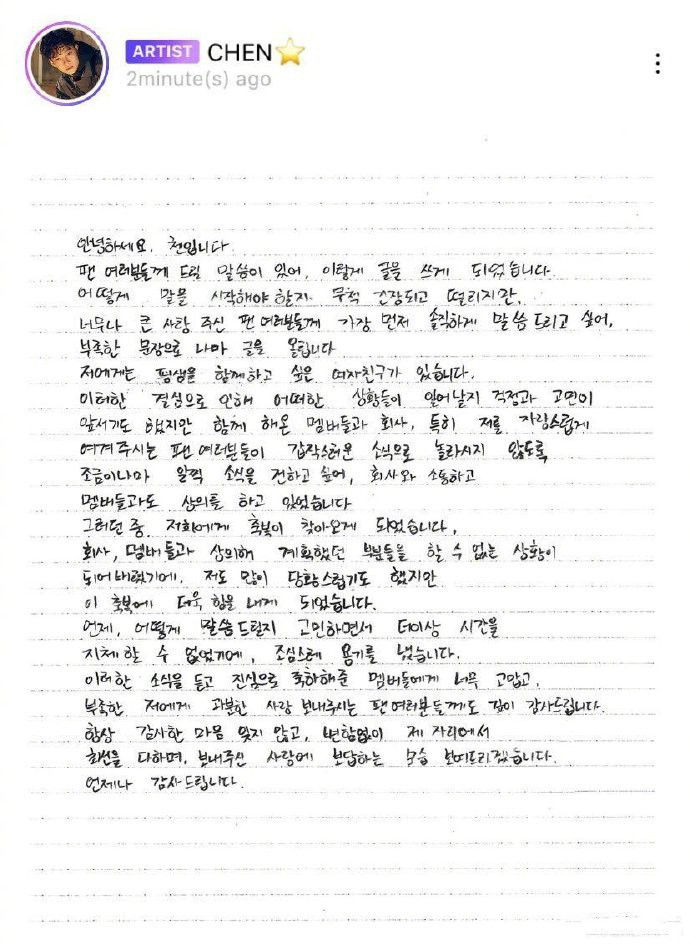 ARTIST CHEN
2minute(s) ago
안녕하세요. 첸입니다.
팬 여러분들께 드릴 말씀이 있어, 이렇게 글을 쓰게 되었습니다.
어떻게 말을 시작해야 할지 무척 긴장되고 떨리지만,
너무나 큰 사랑 주신 팬 여러분들께 가장 먼저 솔직하게 말씀드리고 싶어,
부족한 문장으로나마 글을 올립니다
저에게는 평생을 함께하고 싶은 여자친구가 있습니다.
이러한 결심으로 인해 어떠한 상황들이 일어날지 걱정과 고민이
앞서기도 했지만 함께 해온 멤버들과 회사, 특히 저를 자랑스럽게
여겨주시는 팬 여러분들이 갑작스러운 소식으로 놀라시지 않도록
조금이나마 일찍 소식을 전하고 싶어, 회사와 소통하고
멤버들과도 상의를 하고 있었습니다
그러던 중 저희에게 축복이 찾아오게 되었습니다.
회사, 멤버들과 상의해 계획했던 부분들을 할 수 없는 상황이
되어버렸기에, 저도 많이 당황스럽기도 했지만
이 축복에 더욱 힘을 내게 되었습니다.
언제, 어떻게 말씀드릴지 고민하면서 더이상 시간을
지체할 수 없었기에, 조심스레 용기를 냈습니다.
이러한 소식을 듣고 진심으로 축하해준 멤버들에게 너무 고맙고,
부족한 저에게 과분한 사랑 보내주시는 팬 여러분들께도 깊이 감사드립니다.
항상 감사한 마음 잊지 않고, 변함없이 제 자리에서
최선을 다하며, 보내주신 사랑에 보답하는 모습 보여드리겠습니다.
언제나 감사드립니다.